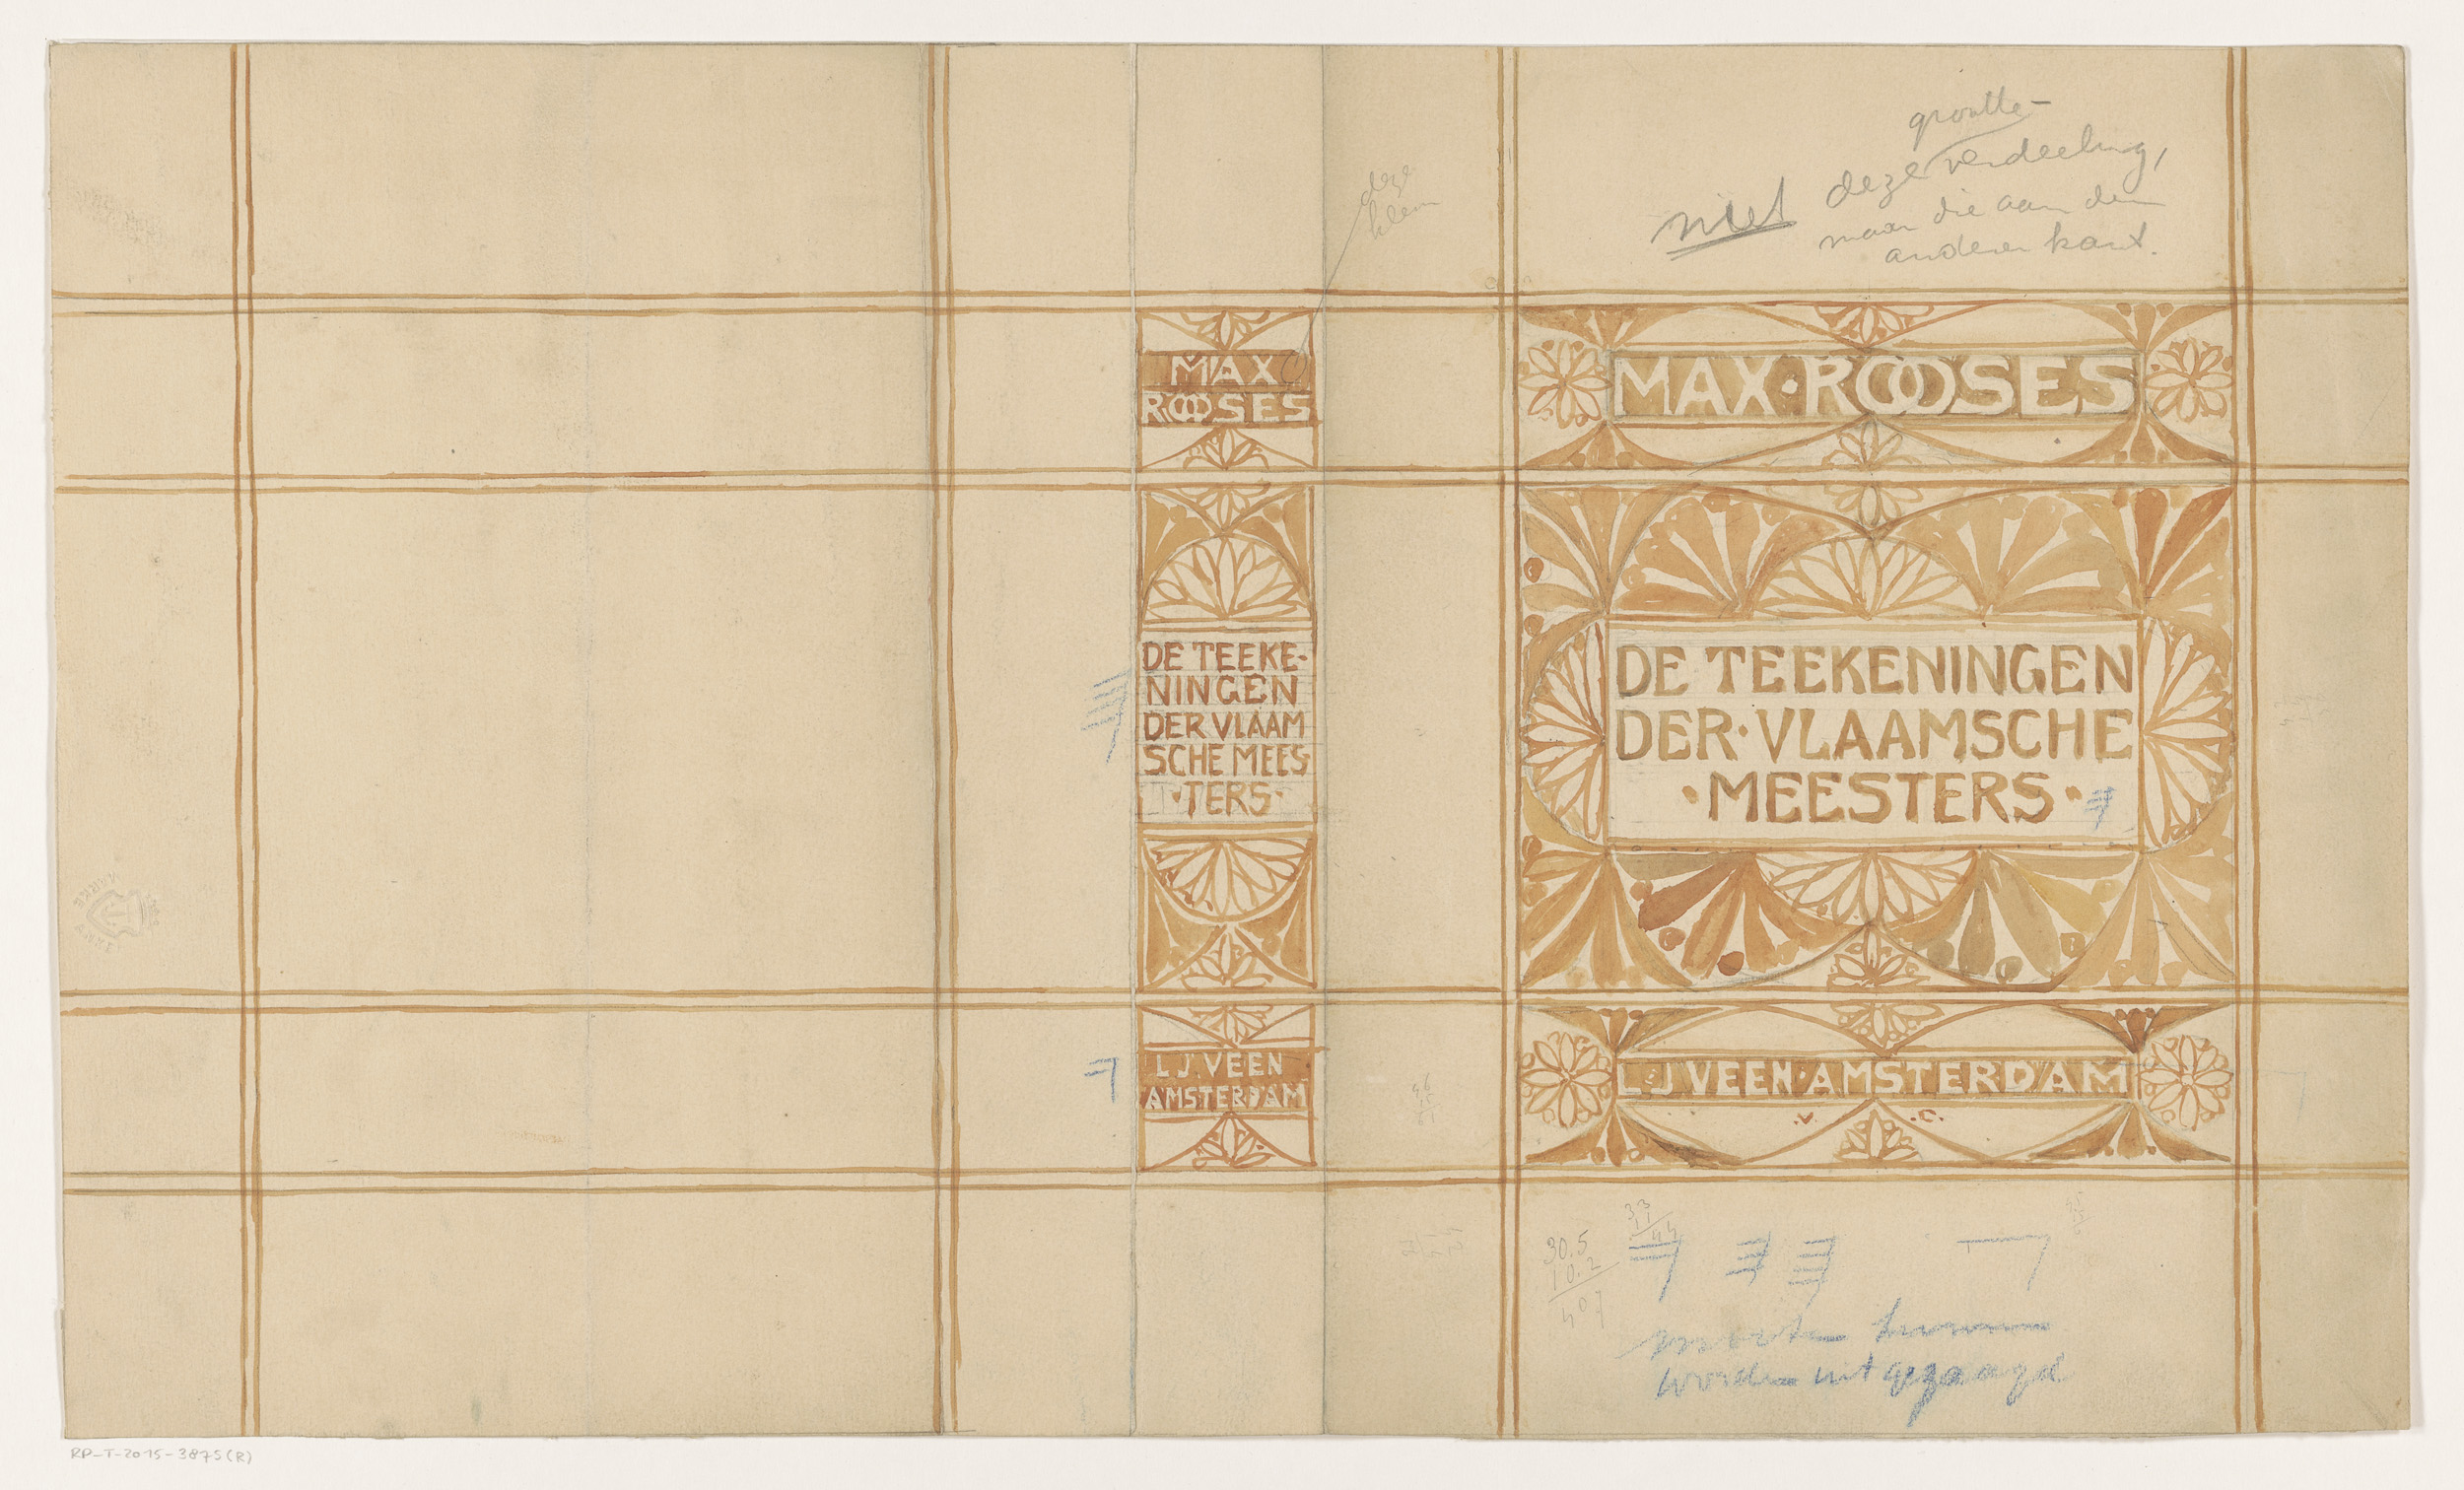 grootte-
niet deze verdeeling,
maar die aan den
anderen kant.
deze
klein
MAX
ROOSES
DE TEEKE-
NINGEN
DER VLAAM
SCHE MEES
·TERS·
L J. VEEN
AMSTERDAM
MAX·ROOSES
DE TEEKENINGEN
DER·VLAAMSCHE
·MEESTERS·
L·J VEEN·AMSTERDAM
.V. .C.
33
11
44
30.5
10.2
407
moeten kunnen
worden uitgezaagd
RP-T-2015-3875(R)